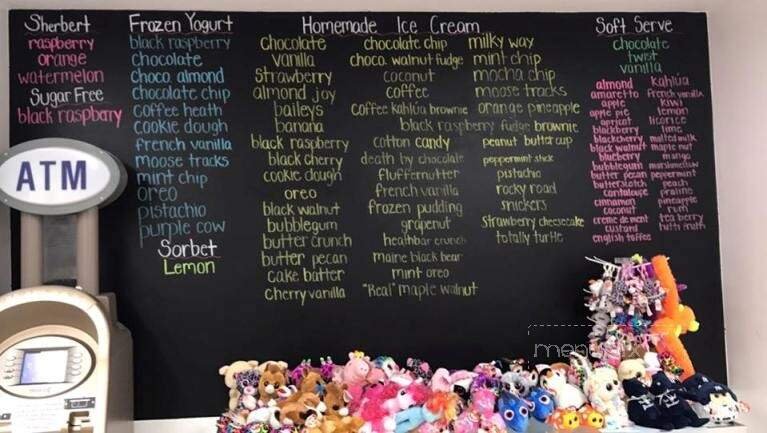 Sherbert
raspberry
orange
watermelon
Sugar Free
black raspbarry
ATM
Frozen Yogurt
black raspberry
chocolate
choco. almond
chocolate chip
coffee heath
cookie dough
french vanilla
moose tracks
mint chip
oreo
pistachio
purple cow
Sorbet
Lemon
Homemade Ice Cream
chocolate
vanilla
strawberry
almond joy
baileys
banana
black raspberry
black cherry
cookie dough
oreo
black walnut
bubblegum
butter crunch
butter pecan
cake batter
cherry vanilla
chocolate chip
choco. walnut fudge
coconut
coffee
coffee kahlúa brownie
black raspberry fudge brownie
cotton candy
death by chocolate
fluffernutter
french vanilla
frozen pudding
grapenut
heathbar crunch
maine black bear
mint oreo
"Real" maple walnut
milky way
mint chip
mocha chip
moose tracks
orange pineapple
peanut butter cup
peppermint stick
pistachio
rocky road
snickers
strawberry cheesecake
totally turtle
Soft Serve
chocolate
twist
vanilla
almond
amaretto
apple
apple pie
apricot
blackberry
blackcherry
black walnut
blueberry
bubblegum
butter pecan
butterscotch
cantaloupe
cinnamon
coconut
creme de ment
custard
english toffee
kahlúa
french vanilla
kiwi
lemon
licorice
lime
malted milk
maple nut
mango
marshmallow
peppermint
peach
praline
pineapple
rum
tea berry
tutti fruiti